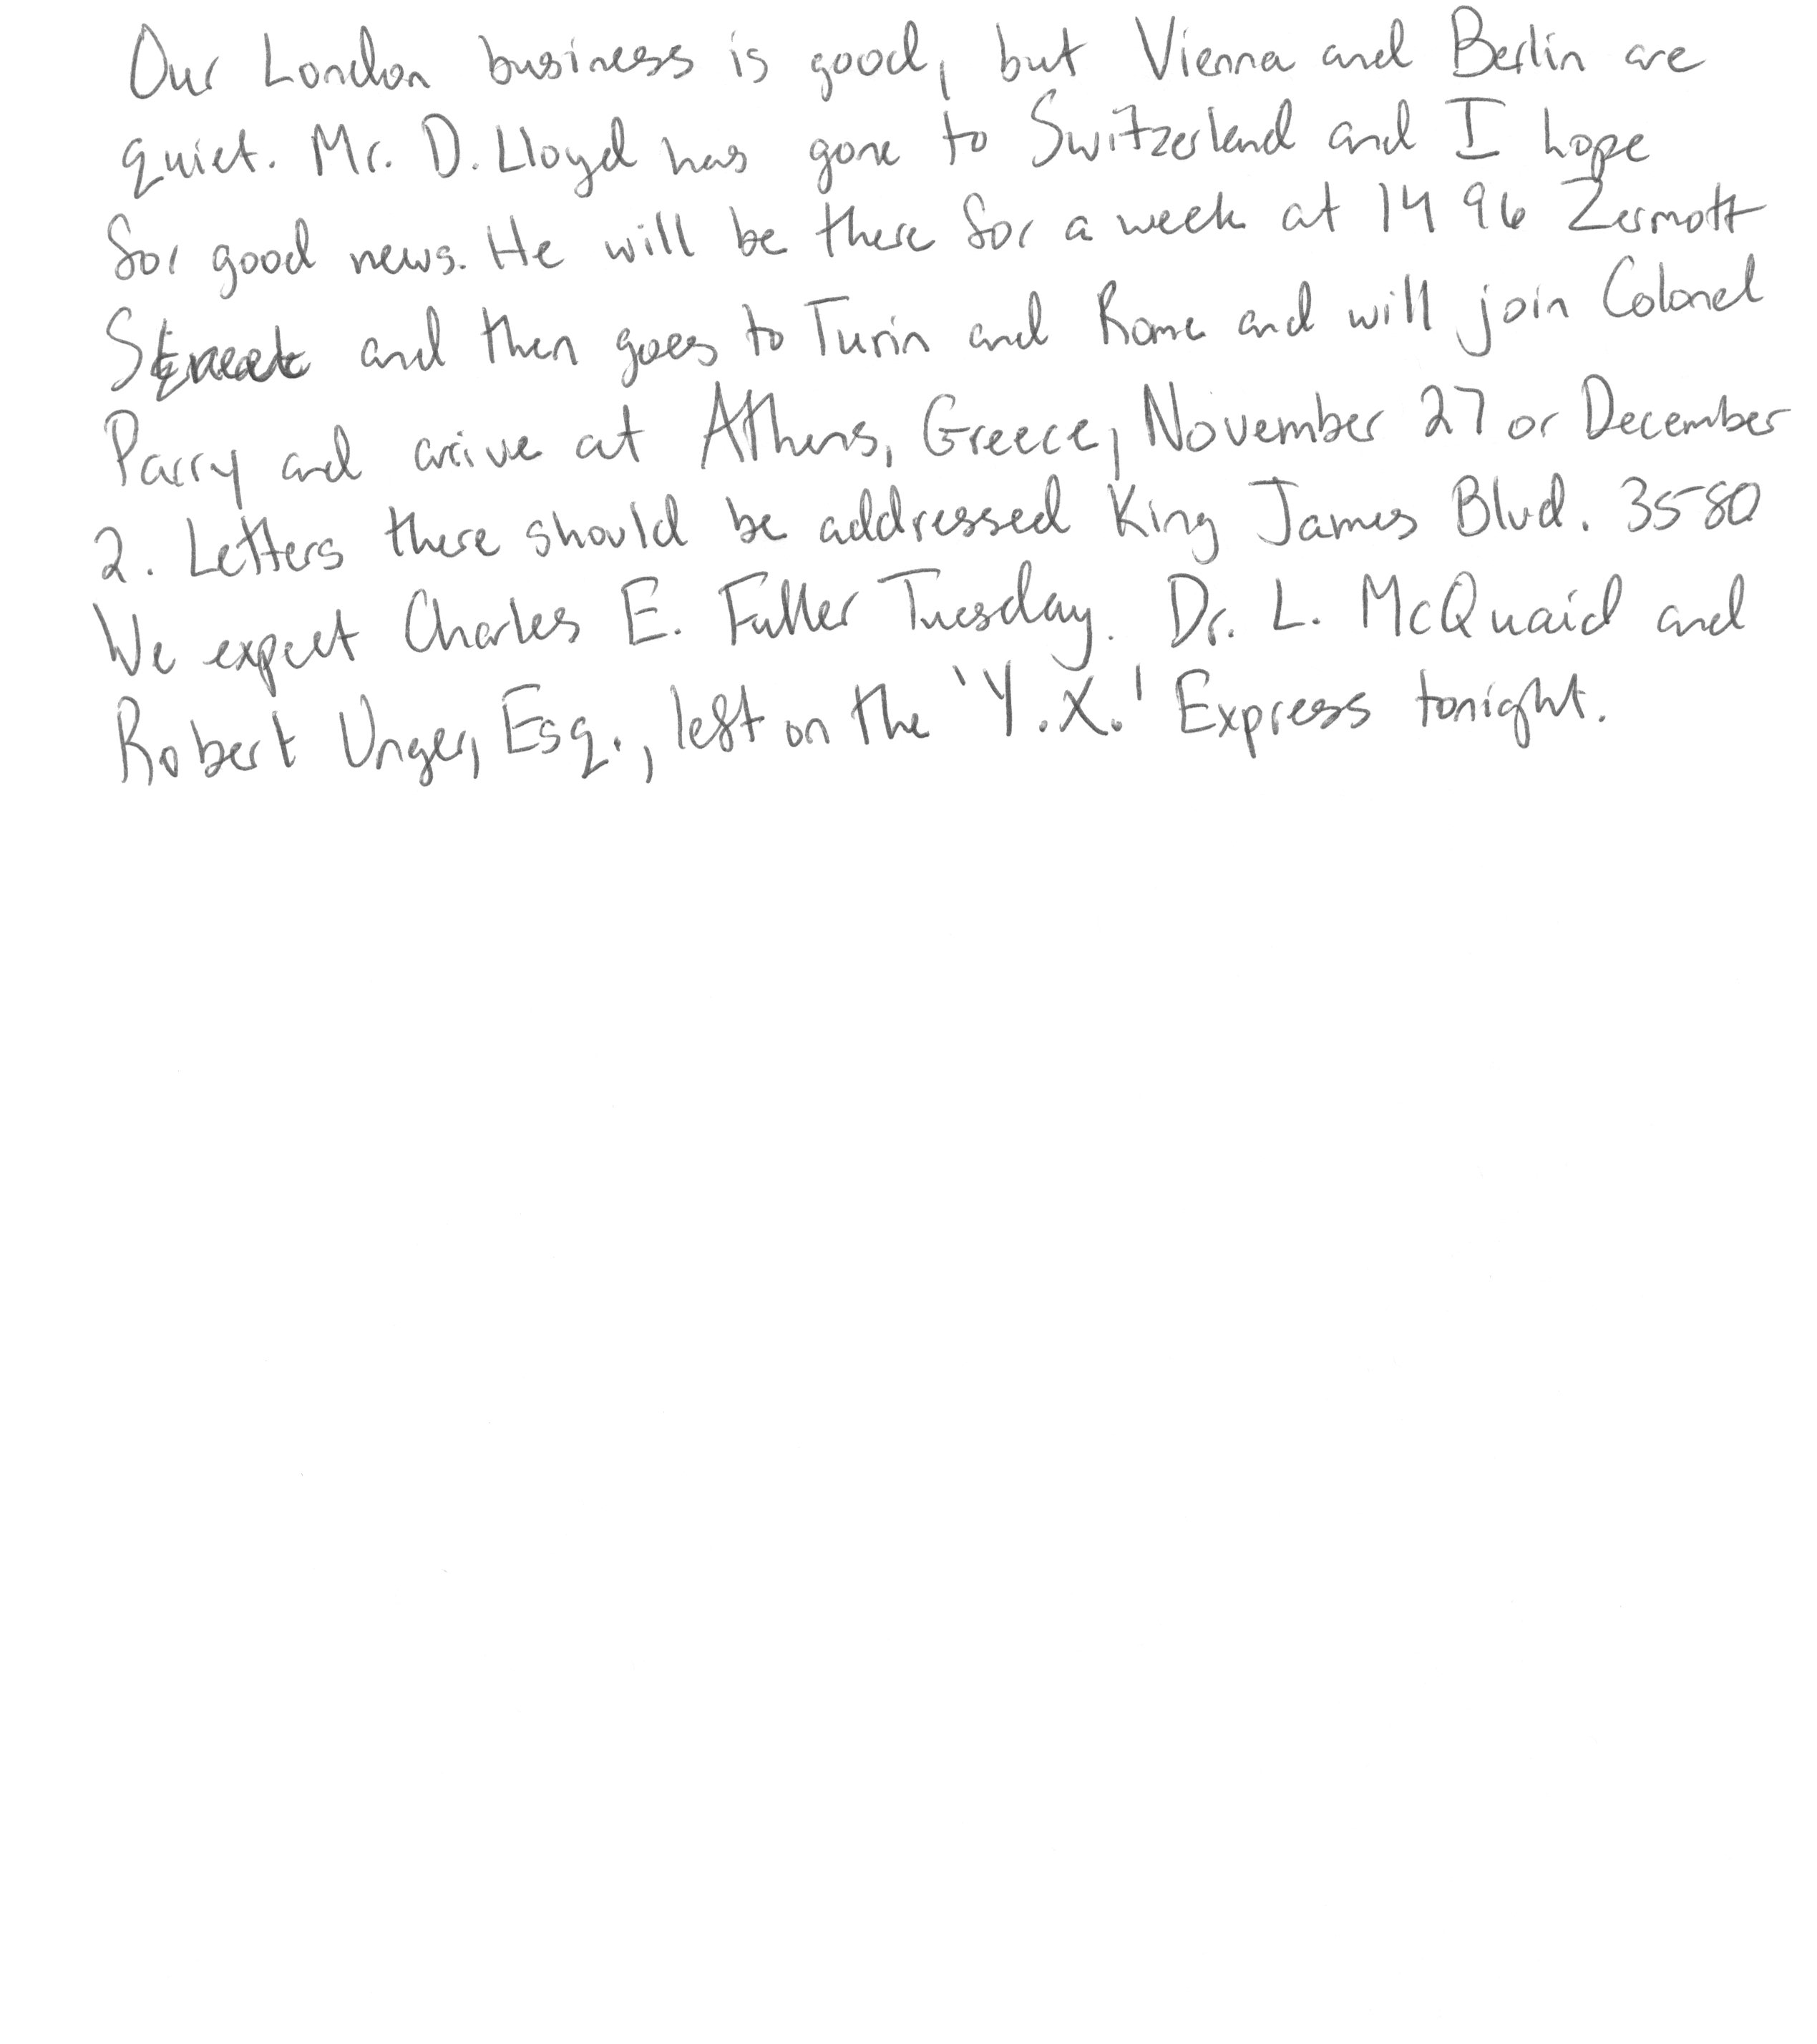 Our London business is good, but Vienna and Berlin are
quiet. Mr. D. Lloyd has gone to Switzerland and I hope
for good news. He will be there for a week at 1496 Zermott
Street and then goes to Turin and Rome and will join Colonel
Parry and arrive at Athens, Greece, November 27 or December
2. Letters there should be addressed King James Blvd. 3580
We expect Charles E. Fuller Tuesday. Dr. L. McQuaid and
Robert Unger, Esq., left on the 'Y.X.' Express tonight.